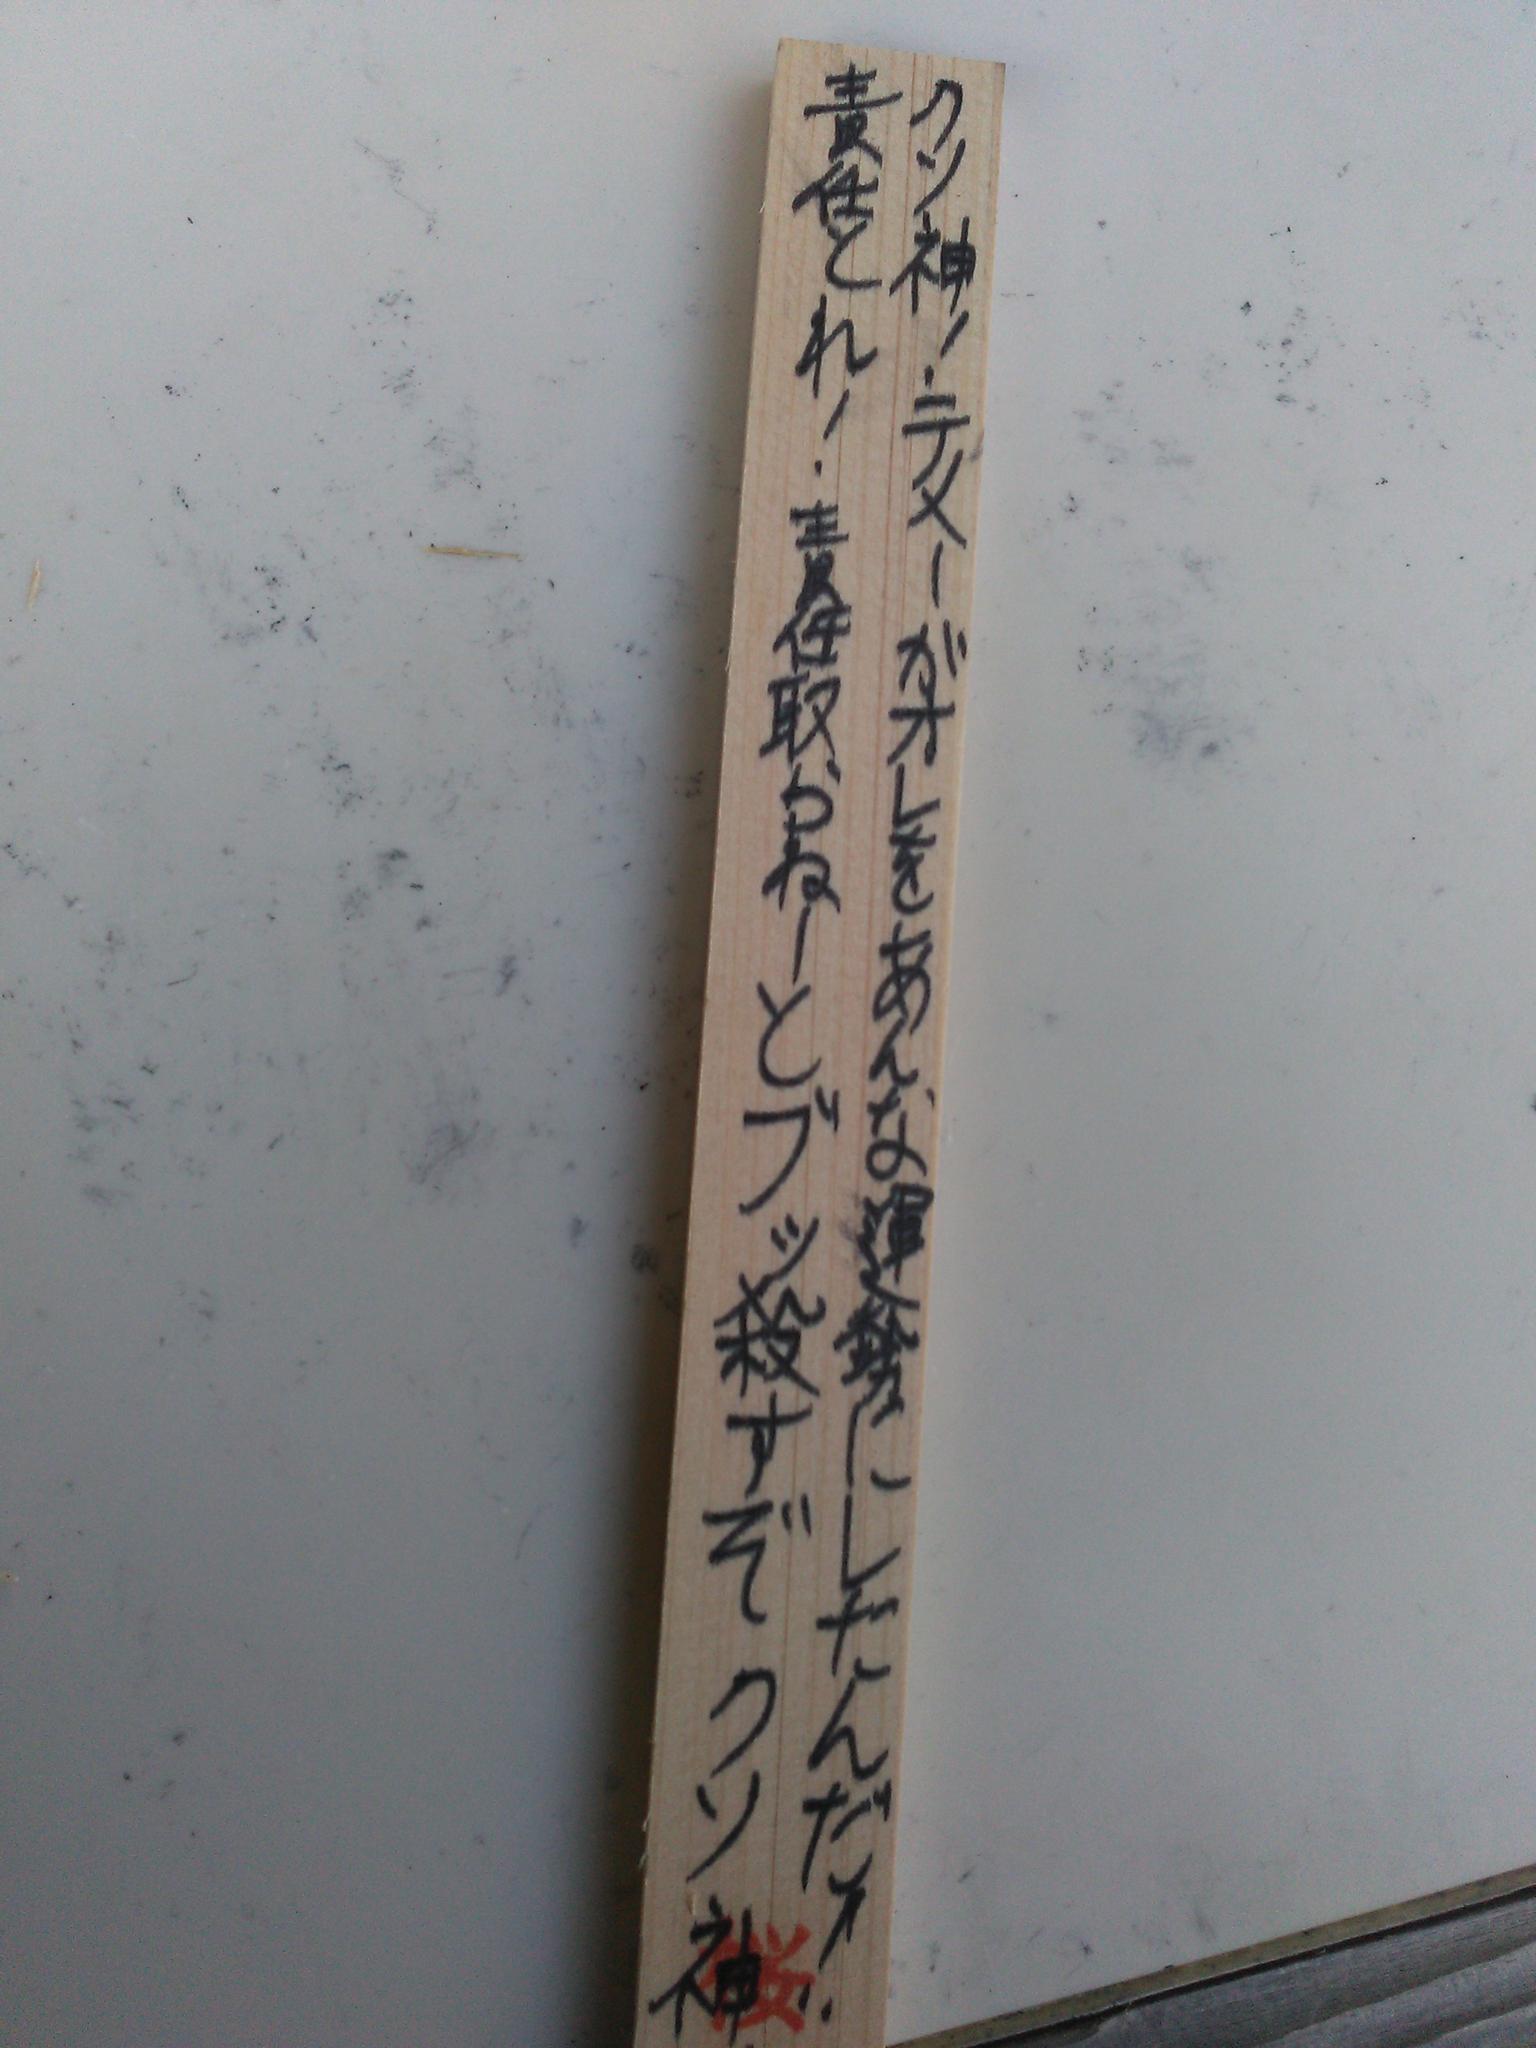 クソ神!テメーがオレをあんなにしたんだォ!!
責任とれ!責任取らねーとブッ殺すぞクソ神
桜